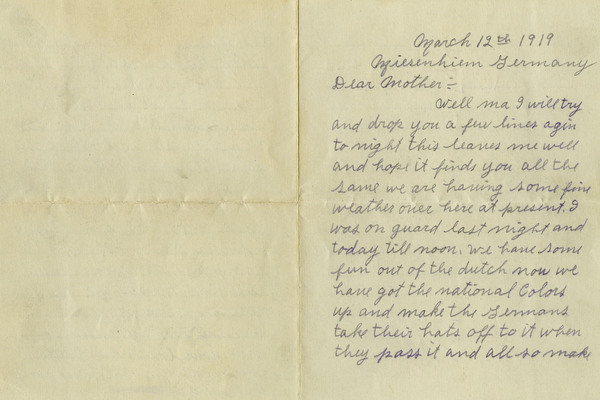 March 12th 1919
Miesenhiem Germany
Dear Mother:-
Well ma I will try
and drop you a few lines agin
to night this leaves me well
and hope it finds you all the
same we are having some fine
weather over here at present. I
was on guard last night and
today till noon. we have some
fun out of the dutch now we
have got the national Colors
up and make the Germans
take their hats off to it when
they pass it and all so make